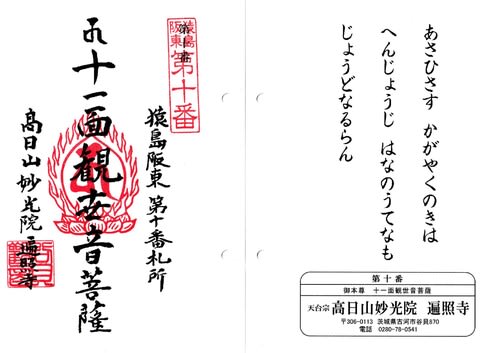 猿島
阪東
第十番
猿島阪東第十番札所
十一面観世音菩薩
高日山妙光院遍照寺
あさひさす かがやくのきは
へんじょうじ はなのうてなも
じょうどなるらん
第十番
御本尊 十一面観世音菩薩
天台宗 高日山妙光院 遍照寺
〒306-0113 茨城県古河市谷貝870
電話 0280-78-0541